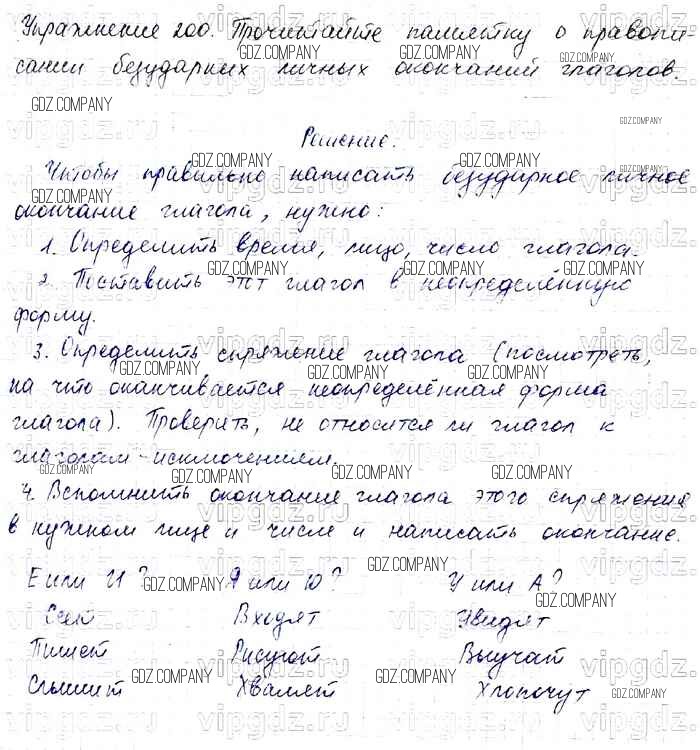 Упражнение 200. Прочитайте памятку о правопи-
сании безударных личных окончаний глаголов.
Решение.
Чтобы правильно написать безударное личное
окончание глагола, нужно:
1. Определить время, лицо, число глагола.
2. Поставить этот глагол в неопределённую
форму.
3. Определить спряжение глагола (посмотреть,
на что оканчивается неопределённая форма
глагола). Проверить, не относится ли глагол к
глаголам-исключениям.
4. Вспомнить окончание глагола этого спряжения
в нужном лице и числе и написать окончание.
Е или И? Я или Ю? У или А?
Сеет Входят Увидят
Пишет Рисуют Выучат
Слышит Хвалят Хлопочут
GDZ.COMPANY
vipgdz.ru